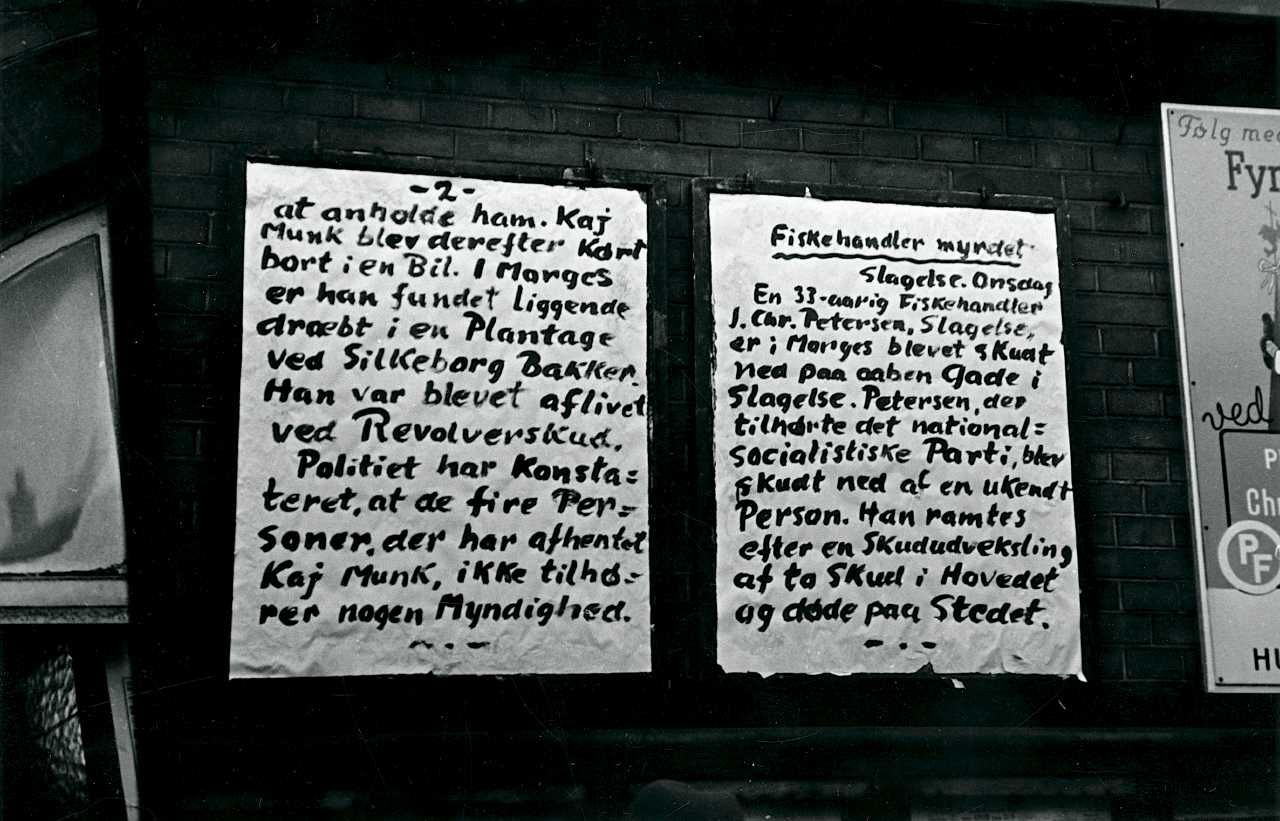 -2-
at anholde ham. Kaj
Munk blev derefter Kørt
bort i en Bil. I Morges
er han fundet liggende
dræbt i en Plantage
ved Silkeborg Bakker.
Han var blevet aflivet
ved Revolverskud.
Politiet har Konsta=
teret, at de fire Per=
soner, der har afhentet
Kaj Munk, ikke tilhø=
rer nogen Myndighed.
Fiskehandler myrdet.
Slagelse. Onsdag
En 33-aarig Fiskehandler
J. Chr. Petersen, Slagelse,
er i Morges blevet skudt
ned paa aaben Gade i
Slagelse. Petersen, der
tilhørte det national=
socialistiske Parti, blev
skudt ned af en ukendt
Person. Han ramtes
efter en Skududveksling
af to Skud i Hovedet
og døde paa Stedet.
Følg med
Fyn
ved
P
Ch
PF
HU